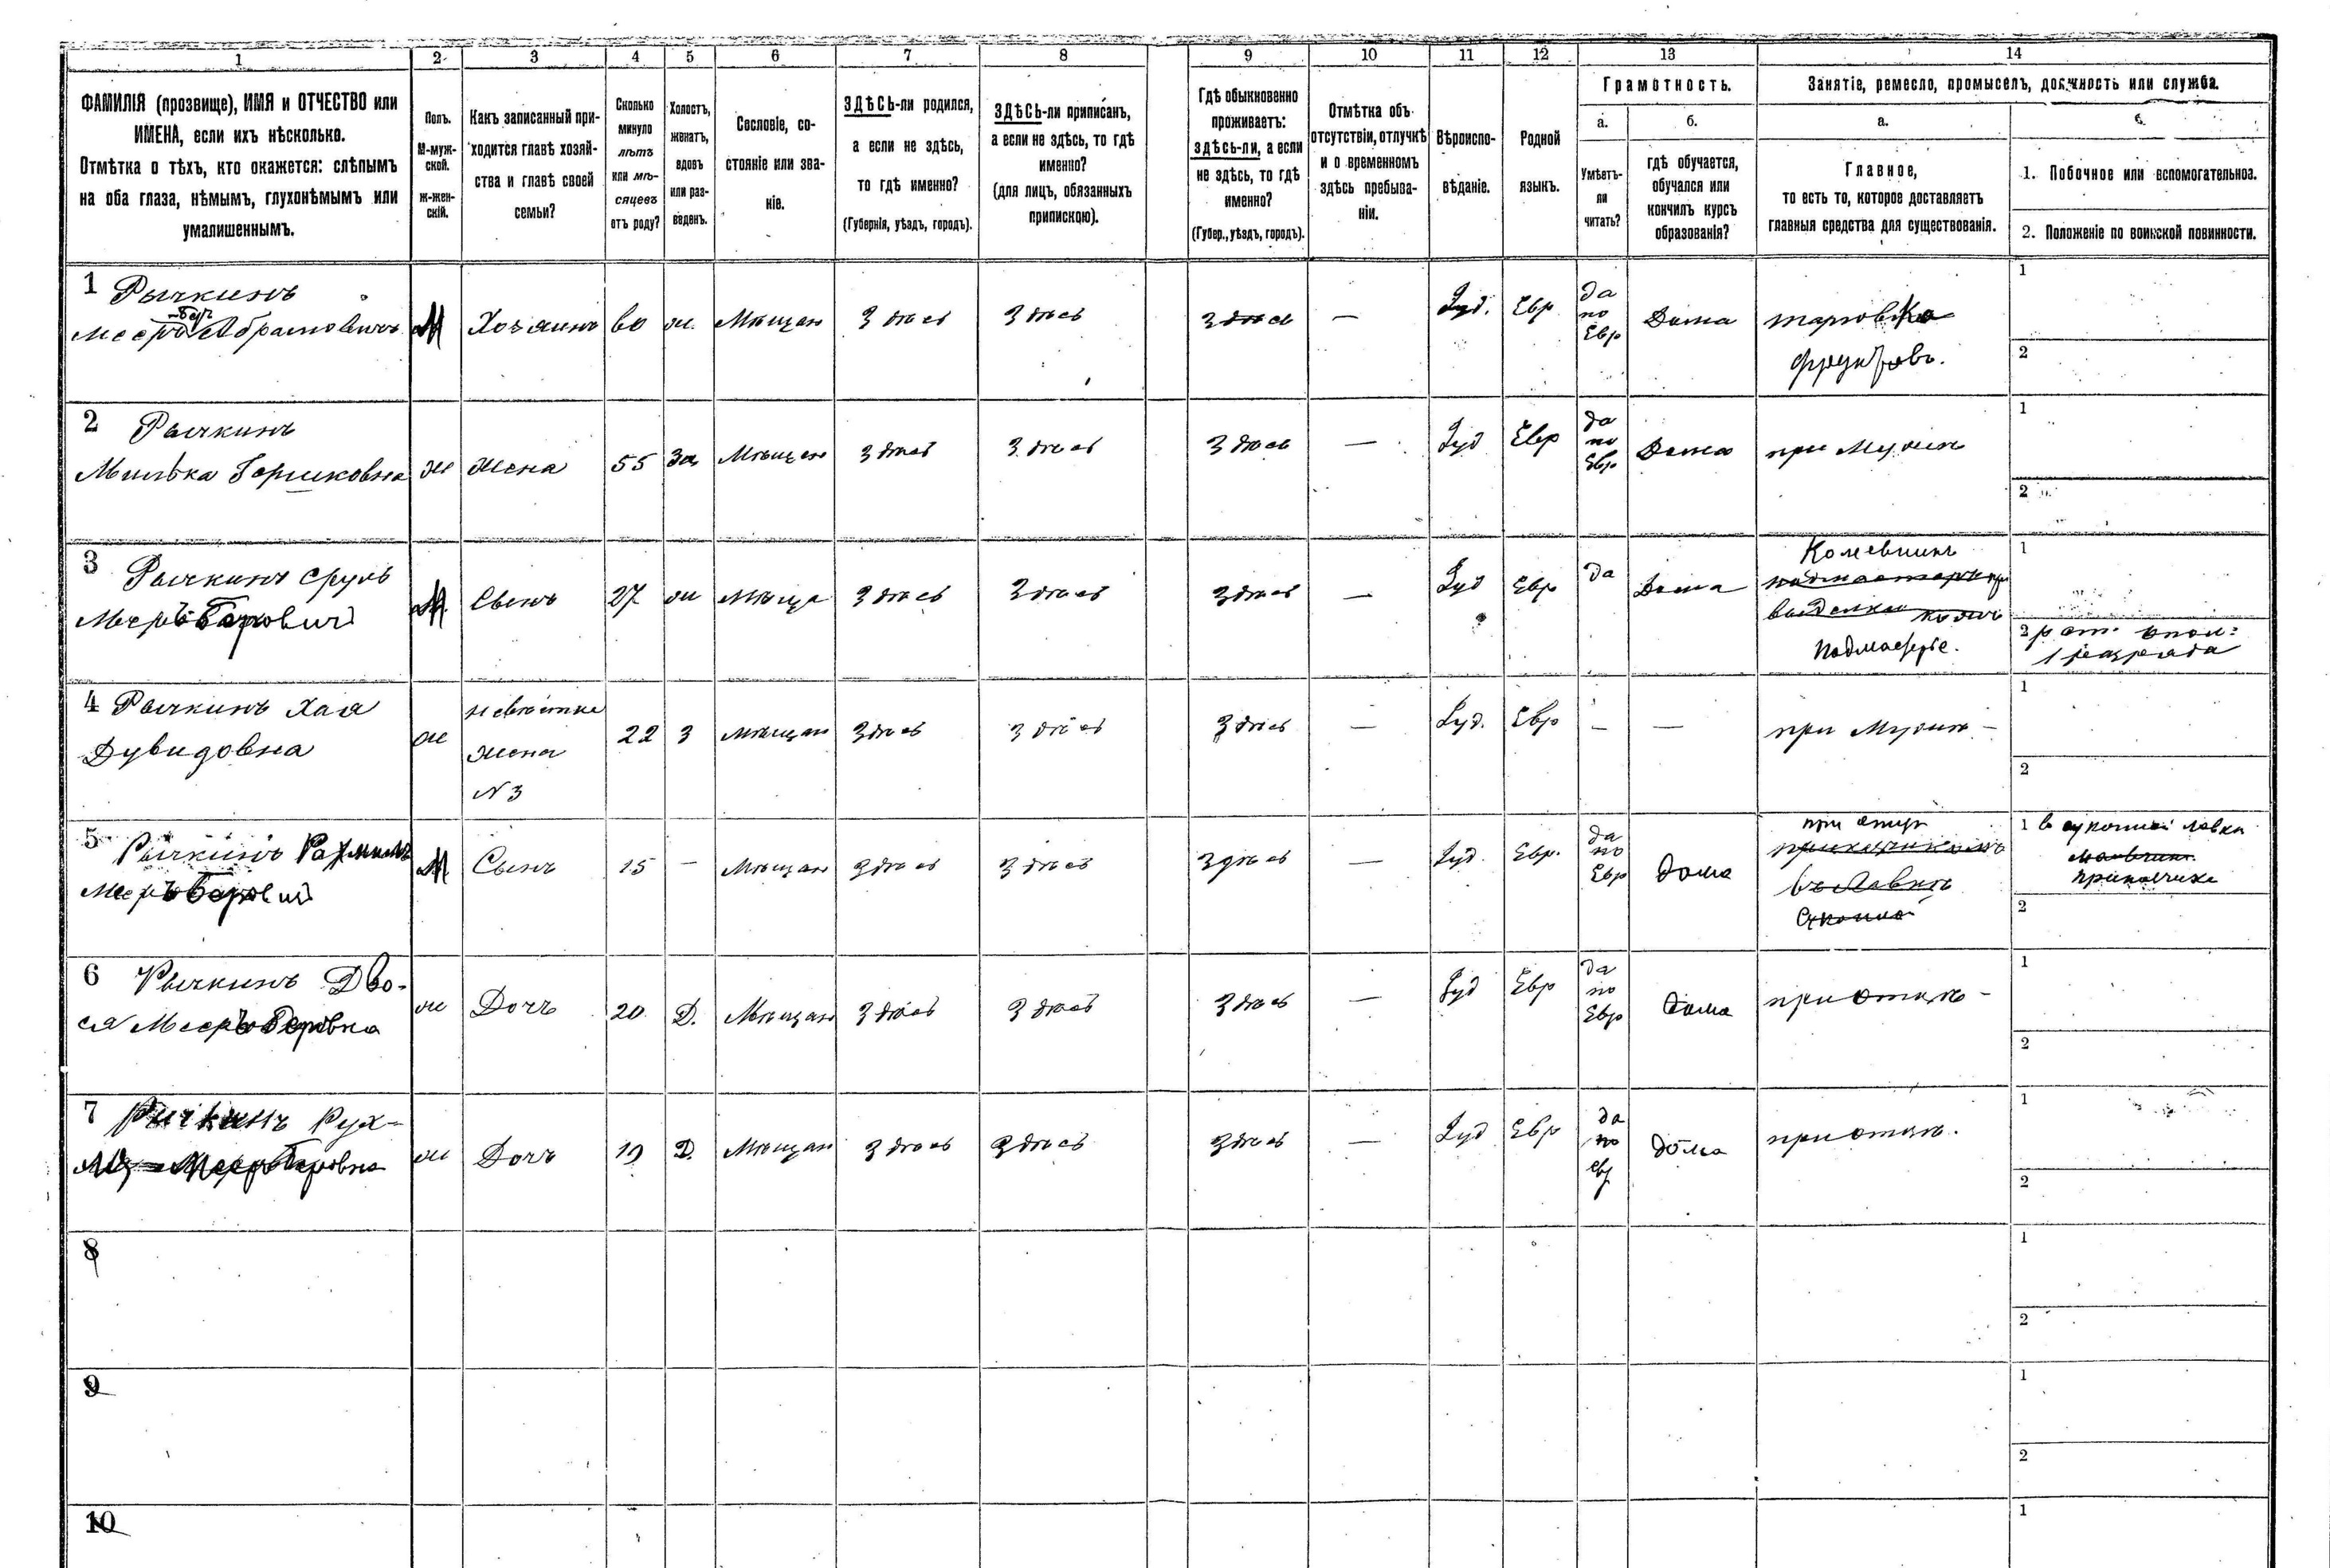 1 2 3 4 5 6 7 8 9 10 11 12 13 14
ФАМИЛІЯ (прозвище), ИМЯ и ОТЧЕСТВО или
ИМЕНА, если ихъ нѣсколько.
Отмѣтка о тѣхъ, кто окажется: слѣпымъ
на оба глаза, нѣмымъ, глухонѣмымъ или
умалишеннымъ.
Полъ.
М-муж-
ской.
ж-жен-
скій.
Какъ записанный при-
ходится главѣ хозяй-
ства и главѣ своей
семьи?
Сколько
минуло
лѣтъ
или мѣ-
сяцевъ
отъ роду?
Холостъ,
женатъ,
вдовъ
или раз-
веденъ.
Сословіе, со-
стояніе или зва-
ніе.
ЗДѢСЬ-ли родился,
а если не здѣсь,
то гдѣ именно?
(Губернія, уѣздъ, городъ).
ЗДѢСЬ-ли приписанъ,
а если не здѣсь, то гдѣ
именно?
(для лицъ, обязанныхъ
припискою).
Гдѣ обыкновенно
проживаетъ:
здѣсь-ли, а если
не здѣсь, то гдѣ
именно?
(Губер., уѣздъ, городъ).
Отмѣтка объ
отсутствіи, отлучкѣ
и о временномъ
здѣсь пребыва-
ніи.
Вѣроиспо-
вѣданіе.
Родной
языкъ.
Грамотность.
а.
Умѣетъ-
ли
читать?
б.
гдѣ обучается,
обучался или
кончилъ курсъ
образованія?
Занятіе, ремесло, промыселъ, должность или служба.
а.
Главное,
то есть то, которое доставляетъ
главныя средства для существованія.
б.
1. Побочное или вспомогательное.
2. Положеніе по воинской повинности.
1 Рычкинъ
Бер
Меер Абрамовичъ
М
Хозяинъ
60
ж.
Мѣщан
Здѣсь
Здѣсь
Здѣсь
—
Іуд.
Евр
да
по
Евр
Дома
торговка
фруктовъ.
1
2
2 Рычкинъ
Милька Гершковна
ж
Жена
55
За
Мѣщан
Здѣсь
Здѣсь
Здѣсь
—
Іуд
Евр
да
по
Евр
Дома
при Мужѣ
1
2
3 Рычкинъ Сруль
Меерберович
М.
Сынъ
27
ж
Мѣща
Здѣсь
Здѣсь
Здѣсь
—
Іуд
Евр
да
Дома
Кожевникъ
подмастерье.
1
2 рат. опол:
1 разряда
4 Рычкинъ Хая
Дувидовна
ж
невѣстка
жена
№ 3
22
З
мѣщан
Здѣсь
Здѣсь
Здѣсь
—
Іуд.
Евр
—
—
при Мужѣ —
1
2
5 Рычкинъ Рахмиль
Меерберович
М
Сынъ
15
—
Мѣщан
Здѣсь
Здѣсь
Здѣсь
—
Іуд.
Евр.
да
по
Евр
дома
при отцѣ
приказчикомъ
въ Лавкѣ
Суконно
1 в суконной лавки
мальчик
приказчика
2
6 Рычкинъ Дво-
ся Меерберовна
ж
Дочь
20
Д.
Мѣщан
Здѣсь
Здѣсь
Здѣсь
—
Іуд
Евр
да
по
Евр
дома
при отцѣ —
1
2
7 Рычкинъ Рух-
Меерберовна
ж
Дочь
19
Д.
Мѣщан
Здѣсь
Здѣсь
Здѣсь
—
Іуд
Евр
да
по
евр
дома
при отцѣ.
1
2
8
1
2
9
1
2
10
1